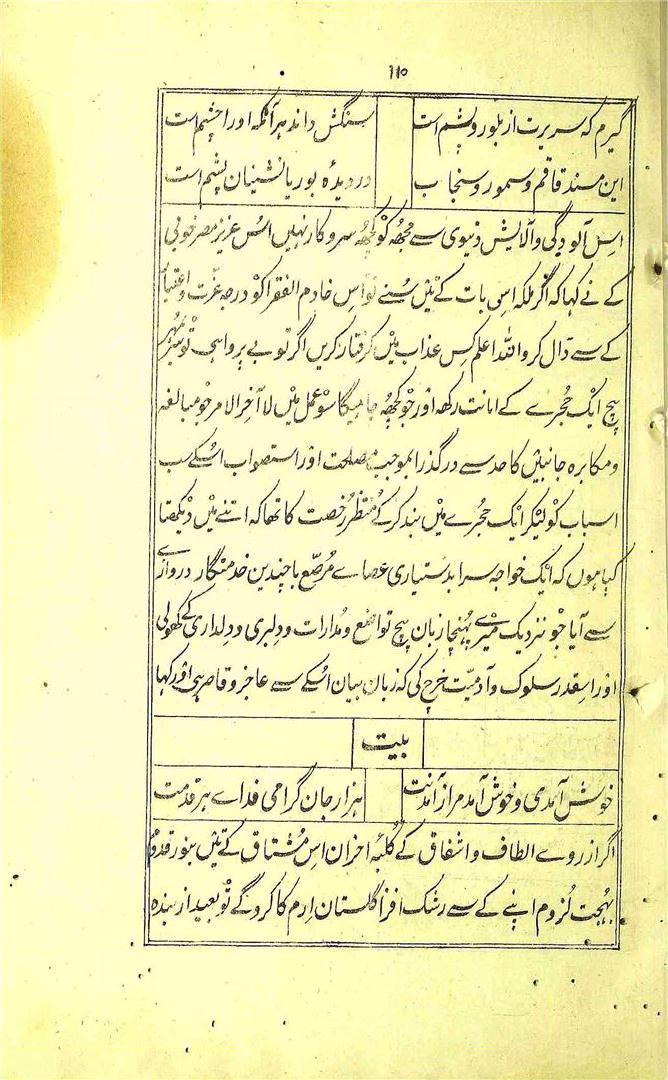 ۱۱۵
گیرم کہ سریرت از بلور و یشم است سنگش داند ہر آنکہ اورا چشم است
این مسند قاقم و سمور و سنجاب در دیدۂ بوریا نشینان پشم است
اس آلودگی و آلایش دنیوی سے مجھہ کو کچھہ سروکار نہیں اس عزیز مصر خوبی
کے نے کہا کہ اگر ملکہ اسی بات کے تئیں سُنے تو اس خادم الفقرا کو درجہ عزت و اعتبار
کے سے ڈال کر واللہ اعلم کس عذاب میں گرفتار کریں اگر تو بے پرواہی تو سر بمہر
بیچ ایک حُجرے کے امانت رکھہ اور جو کچھہ چاہیگا سو عمل میں لا آخر الامر جو مبالغہ
و مکابرہ جانبین کا حد سے در گذرا بموجب مصلحت اور استصواب اُسکے سب
اسباب کو لیکر ایک حُجرے میں بند کر کے مُنتظر رُخصت کا تھا کہ اتنے میں دیکھتا
کیا ہوں کہ ایک خواجہ سرا بدستیاری عصاے مُرصّع با چندین خدمتگار دروازے
سے آیا جو نزدیک میرے پہُنچا زبان بیچ تواضع و مُدارات و دلبری و دلداری کے کھولی
اور اسقدر سلوک و آدمیّت خرچ کی کہ زبان بیان اُسکے سے عاجز و قاصر ہی اور کہا
بیت
خوش آمدی و خوش آمد مرا ز آمدنت ہزار جان گرامی فداے ہر قدمت
اگر از روے الطاف و اشفاق کے کُلبۂ احزان اس مُشتاق کے تئیں بنور قدوم
بہُجت لُزوم اپنے کے سے رشک افزا گلستان اِرم کا کرو گے تو بعید از بندہ